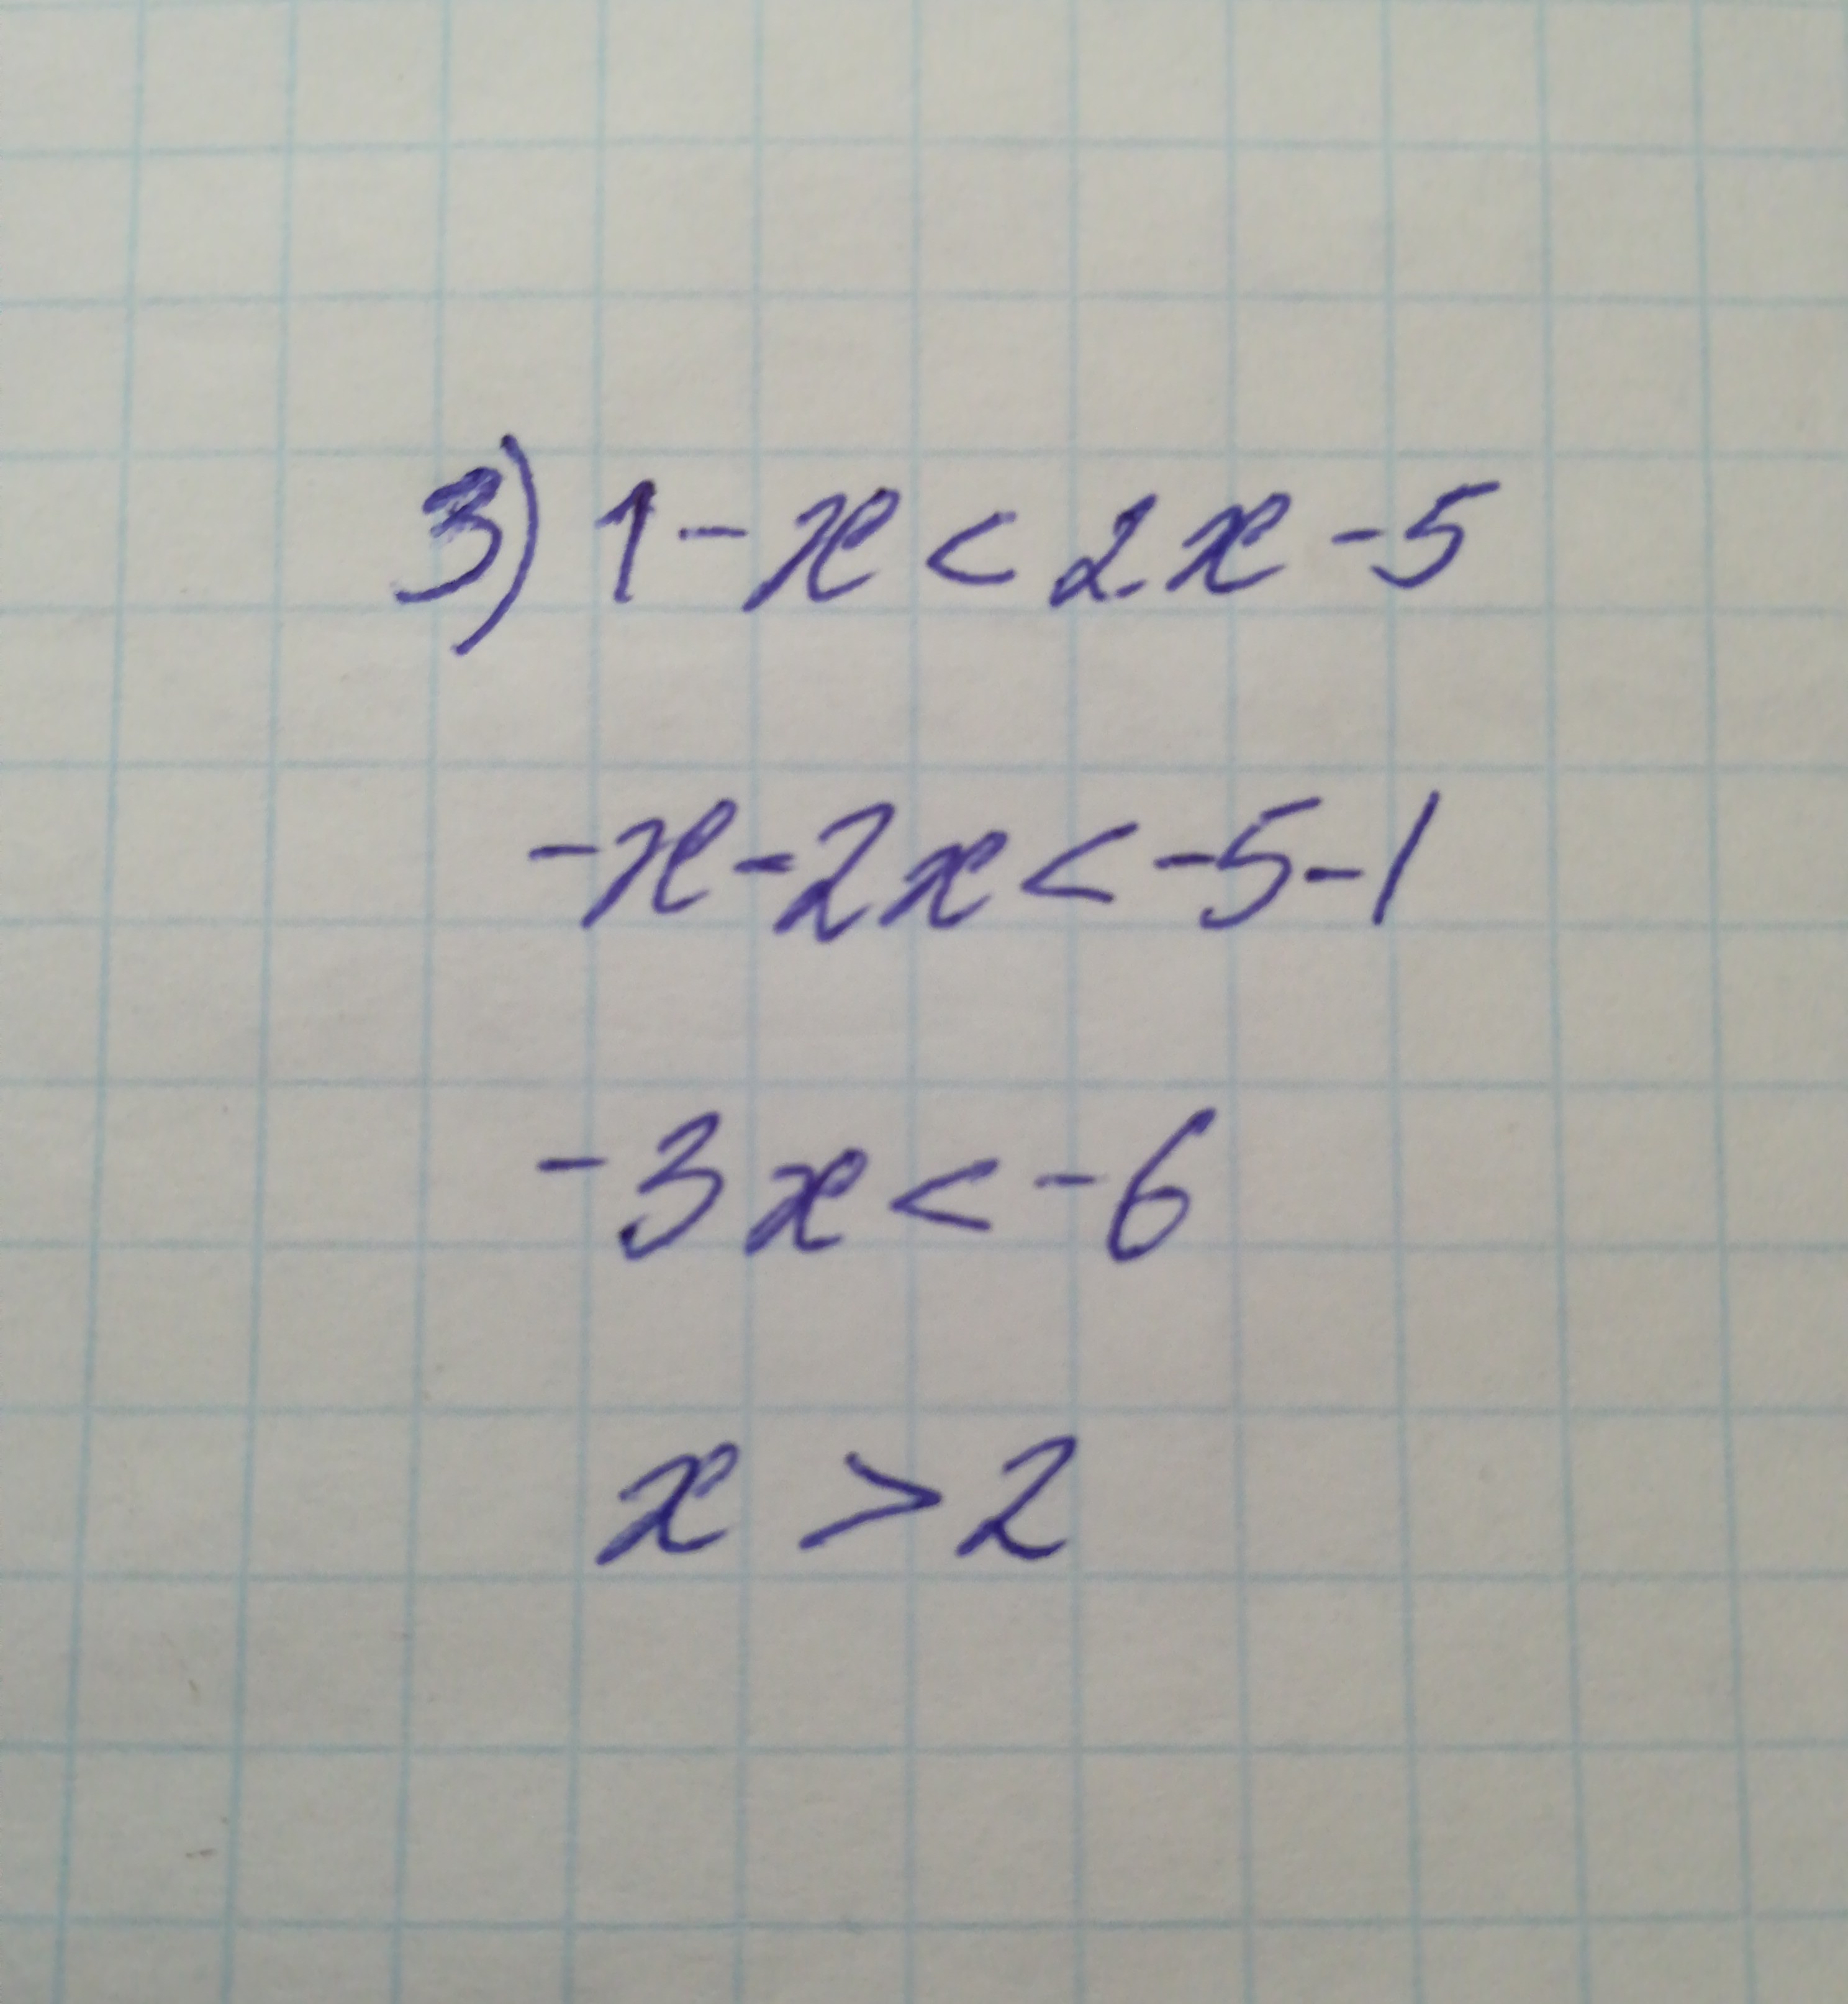 3) 1-x<2x-5
-x-2x<-5-1
-3x<-6
x>2